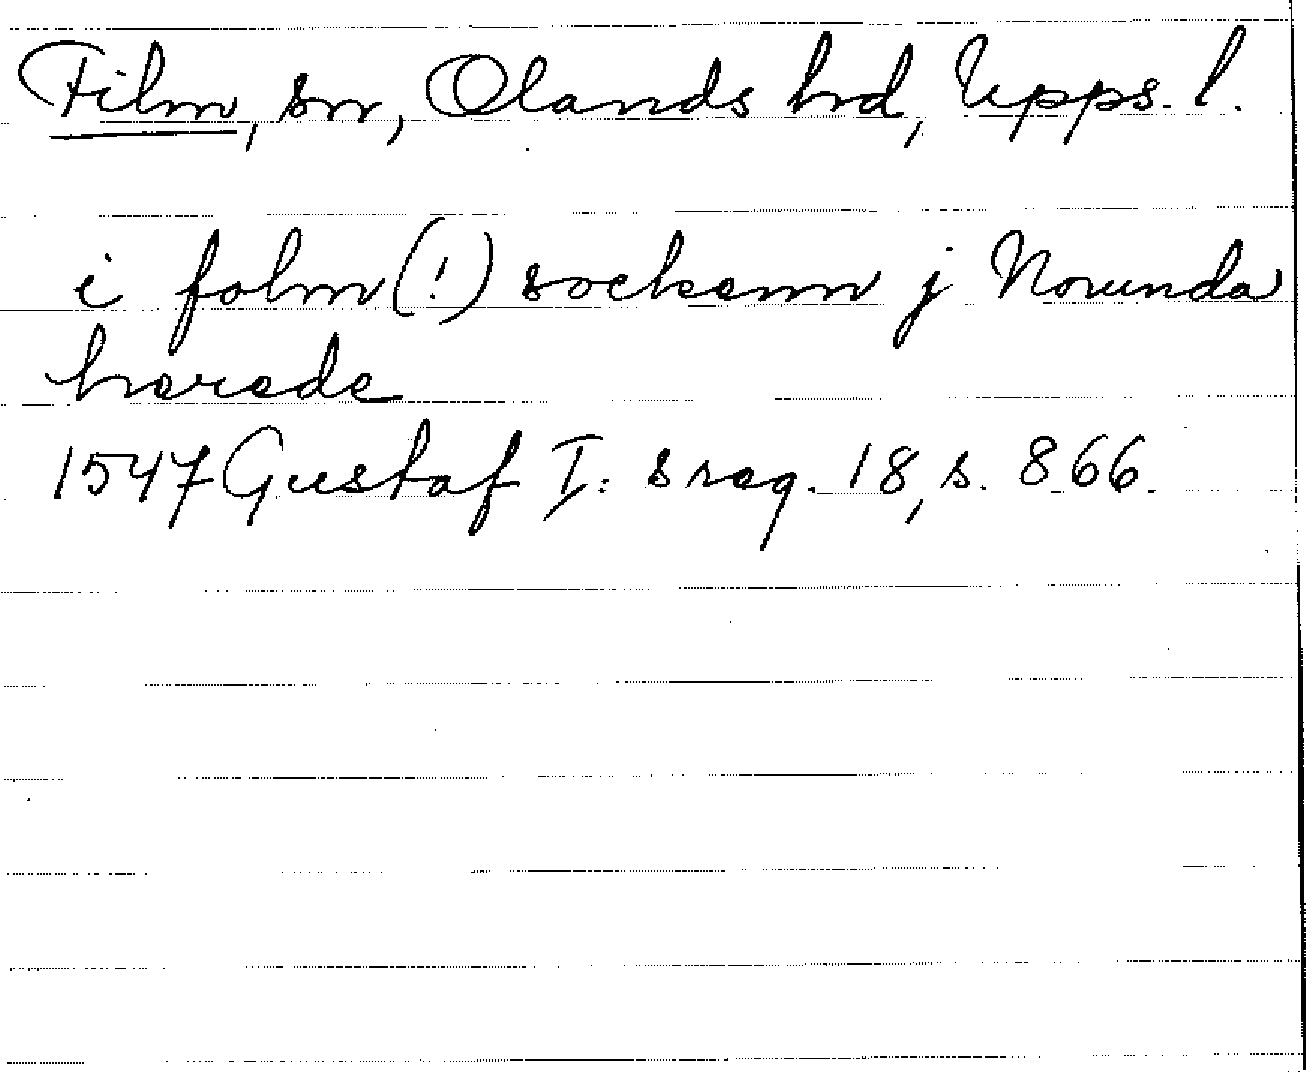 Film, sn, Olands hd, Upps. l.
i folm (!) sockenn j Norunda
herede
1547 Gustaf I:s reg. 18, s. 866.